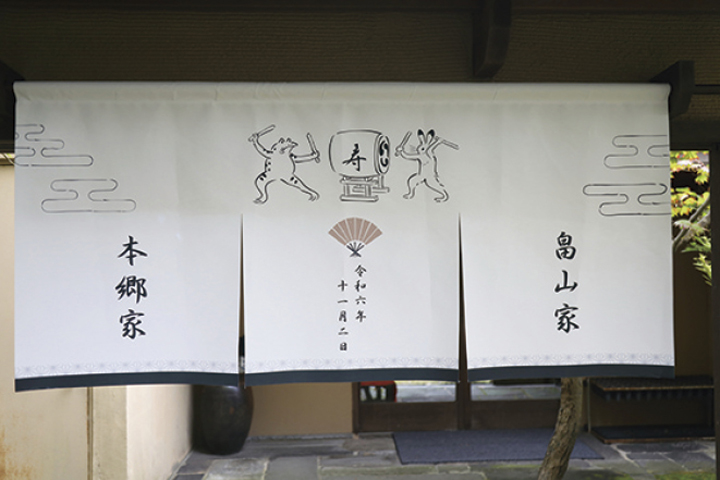 寿
畠山家
令和六年
十一月二日
本郷家